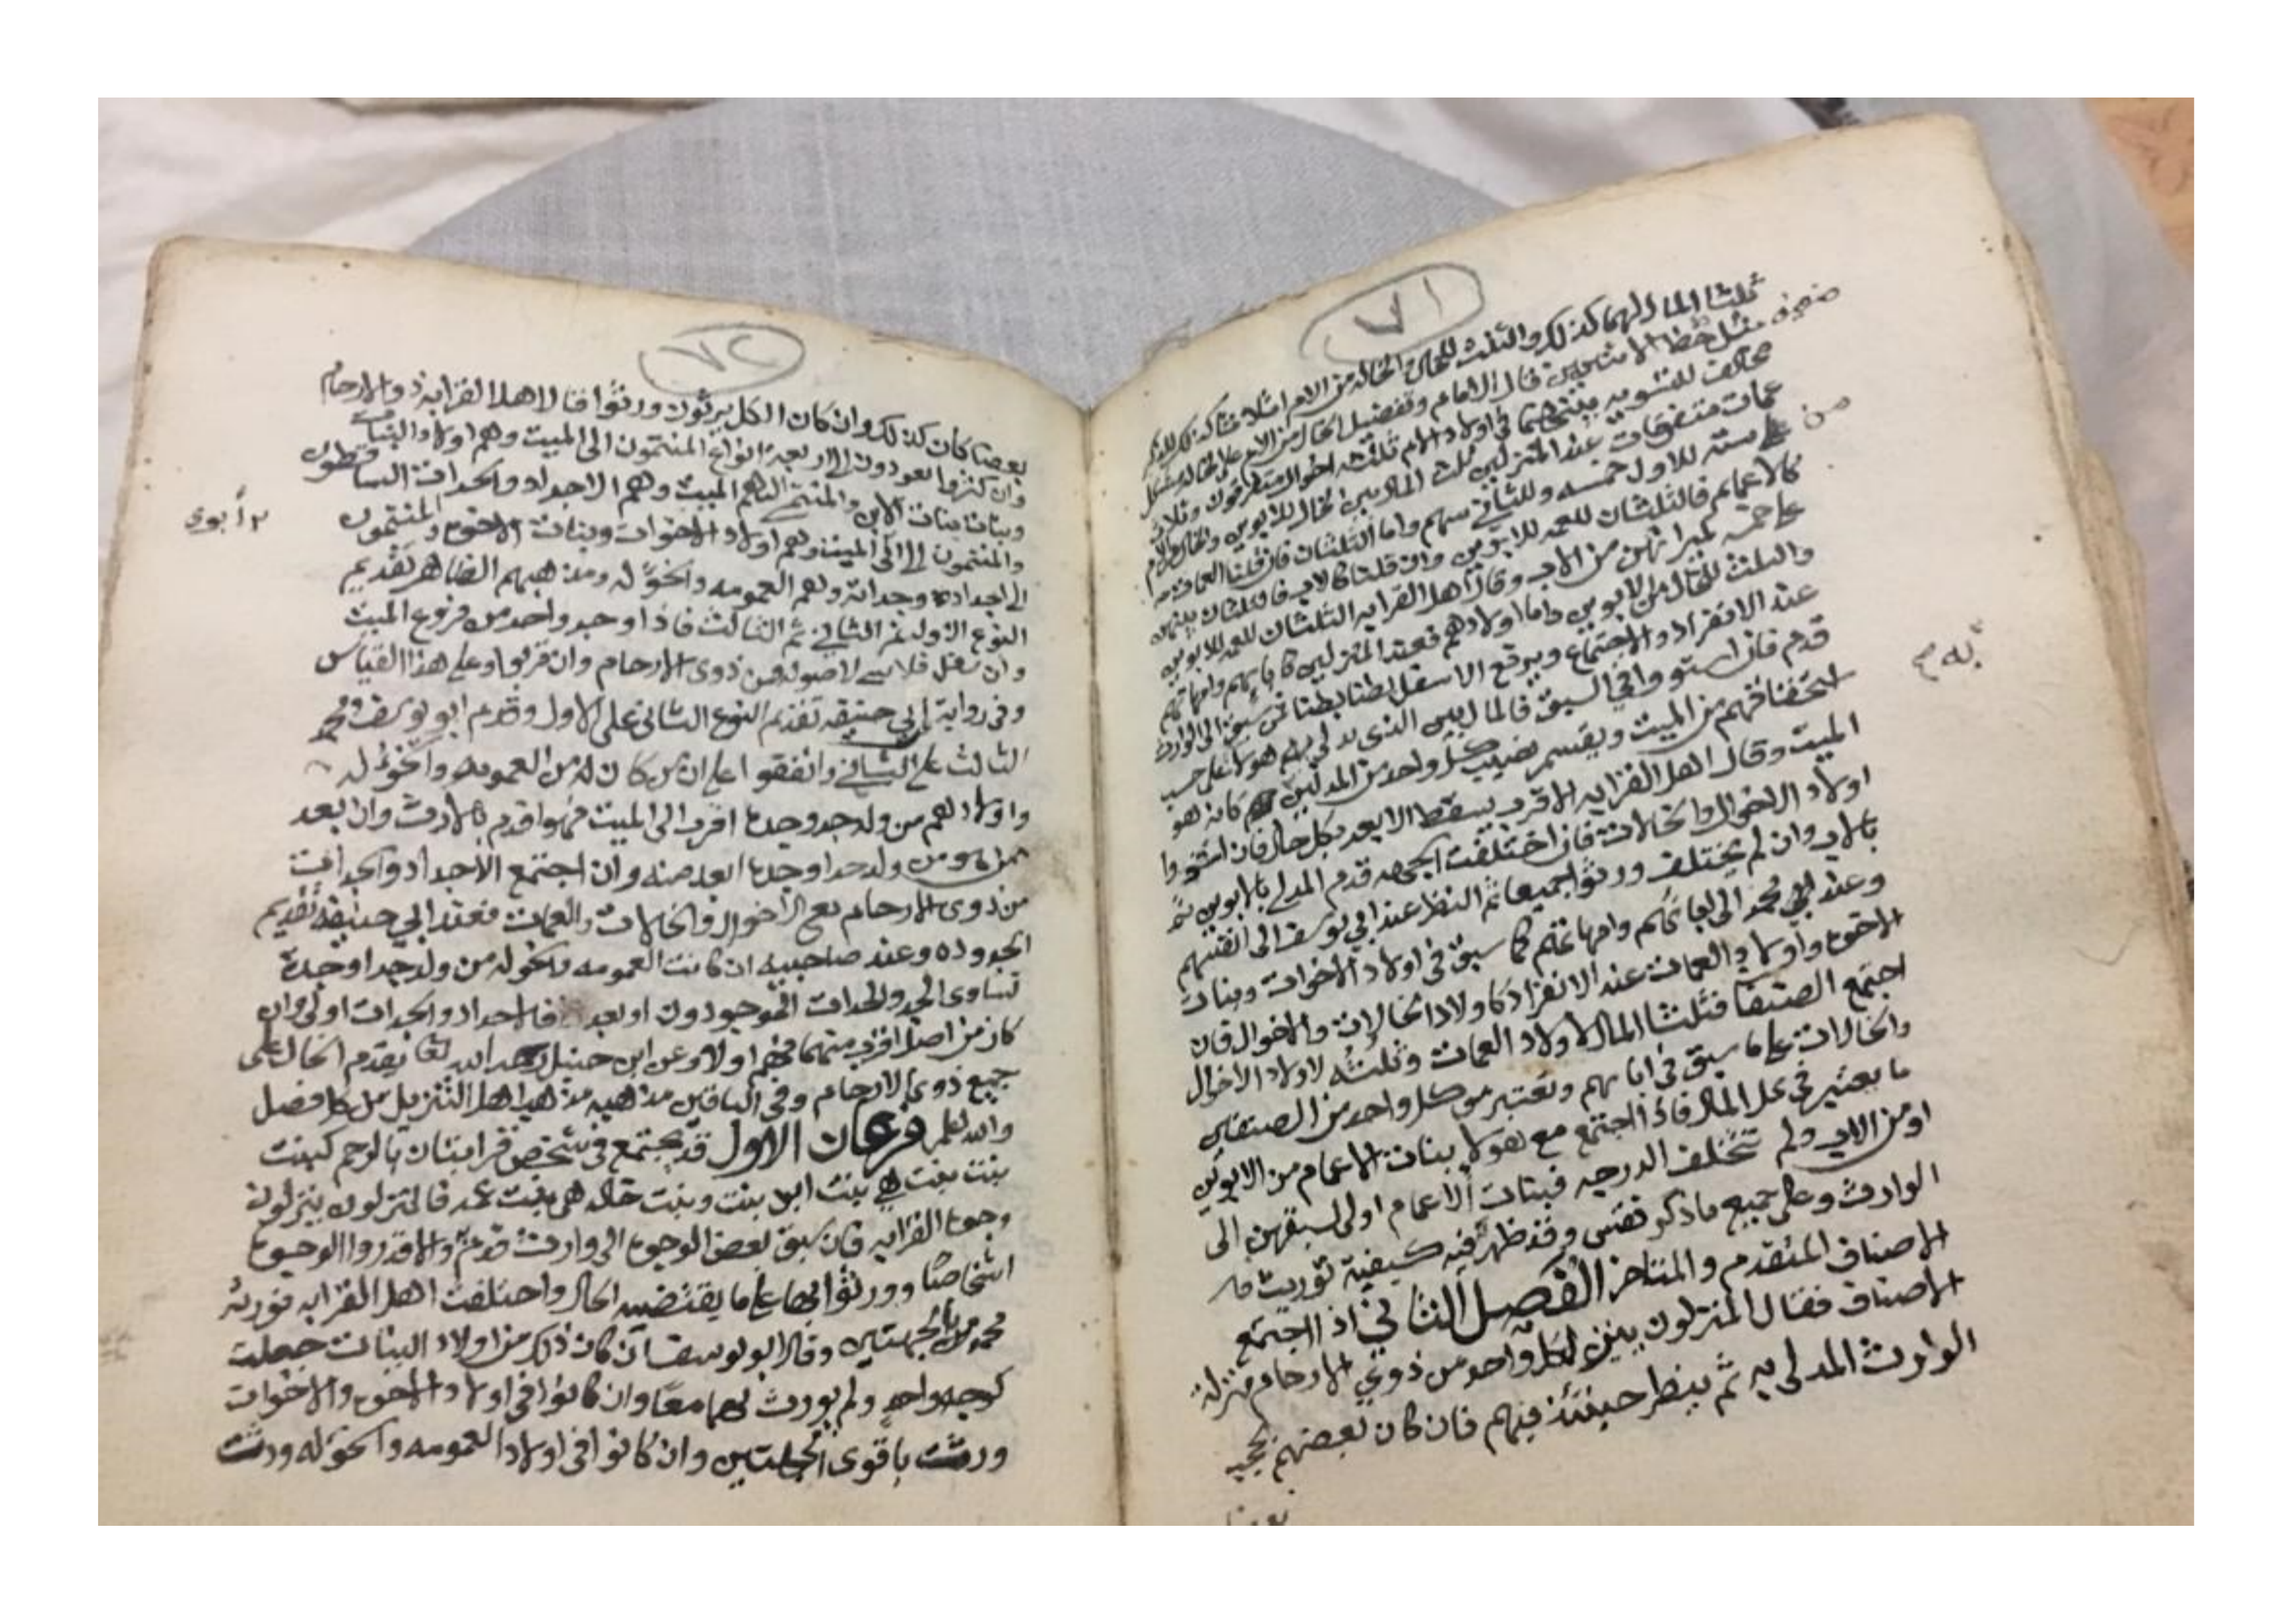 ٧١
ثلثا المال لهما كذلك والثلث للخال والخالة من الام اثلاثا كذلك للذكر
مثل حظ الانثيين قال الامام وتفضيل الخال من الام على الخالة مشكل
مخالف للتسوية بينهما في اولاد الام ثلثه اخوال متفرقون وثلاث
عمات متفرقات عند المنزلين ثلث المال بين الخال للابوين والخال للام
على سته للاول خمسه وللثاني سهم واما الثلثان فان قلنا العمات
كالاعمام فالثلثان للعمه للابوين وان قلنا كالاب فالثلثان بينهن
على خمسه كميراثهن من الاب وقال اهل القرابه الثلثان للعمه للابوين
والثلث للخال من الابوين واما اولادهم فعند المنزلين كابائهم وامهاتهم
عند الانفراد والاجتماع ويرفع الاسفل بطنا بطنا فمن سبق الى الوارث
قدم فان استووا في السبق فالمال بين الذي يدلي بهم هولا على حسب
استحقاقهم من الميت ويقسم نصيب كل واحد من المدلين كانه هو
الميت وقال اهل القرابه الاقرب يسقط الابعد بكل حال فان استووا
اولاد الاخوال والخالات فان اختلفت الجهه قدم المدلي بالابوين ثم
بالاب وان لم يختلف ورثوا جميعا ثم النظر عند ابي يوسف الى انفسهم
وعند محمد الى ابائهم وامهاتهم كما سبق في اولاد الاخوات وبنات
الاخوة واولاد العمات عند الانفراد كاولاد الخالات والاخوال فان
اجتمع الصنفان فثلثا المال لاولاد العمات وثلثه لاولاد الاخوال
والخالات على ما سبق في ابائهم ويعتبر من كل واحد من الصنفين
ما يعتبر في كل المال فاذا اجتمع مع هولا بنات الاعمام من الابوين
او من الاب ولم تختلف الدرجه فبنات الاعمام اولى لسبقهن الى
الوارث وعلى جميع ما ذكر فقس وقد ظهر فيه كيفية توريث
الاصناف المتقدم والمتاخر الفصل الثاني اذا اجتمع
الاصناف فقال المنزلون ينزل كل واحد من ذوي الارحام منزلة
الوارث المدلى به ثم ينظر حينئذ فيهم فان كان بعضهم يحجب
بعضا
٧٢
بعضا كان كذلك وان كان الكل يرثون ورثوا فقالا اهل القرابه ذووا الارحام
وان كثروا يعودون الى اربعة انواع المنتمون الى الميت وهم اولاد البنات
وبنات بنات الابن والمنتمي اليهم الميت وهم الاجداد والجدات الساقطون
والمنتمون الى الميت وهم اولاد الاخوات وبنات الاخوة والمنتمون
٢ أبوي
الى اجداده وجداته وهم العمومه والخؤله ومذهبهم الظاهر تقديم
النوع الاول ثم الثاني ثم الثالث فاذا وجد واحد من فروع الميت
وان سفل فلا شي لاصوله من ذوي الارحام وان قربوا وعلى هذا القياس
وفي رواية ابي حنيفه تقديم النوع الثاني على الاول وقدم ابو يوسف ومحمد
الثالث على الثاني واتفقوا على ان من كان له من العمومه والخؤله
واولادهم من ولد جد وجدة اقرب الى الميت فهو اقدم بالارث وان بعد
ممن هو من ولد جد او جدة ابعد منه وان اجتمع الاجداد والجدات
من ذوي الارحام مع الاخوال والخالات والعمات فعند ابي حنيفة تقديم
الجدوده وعند صاحبيه ان كانت العمومه والخوله من ولد جد او جدة
تساوي الجد والجدات الموجودون او ابعد فالاجداد والجدات اولى وان
كان من اصل اقرب منهما فهم اولا وعن ابن حنبل رحمه الله تعا يقدم الخال على
جميع ذوي الارحام وفي الباقين مذهبه مذهب اهل التنزيل من كل فصل
والله اعلم فرعان الاول قد يجتمع في شخص قرابتان بالرحم كبنت
بنت بنت هي بنت ابن بنت وبنت خاله هي بنت عمه فالمنزلون ينزلون
وجوه القرابه فان سبق بعض الوجوه الى وارث قدم والا قدروا الوجوه
اشخاصا وورثوا بها على ما يقتضيه الحال واختلفت اهل القرابه فورثه
محمد من الجهتين وقال ابو يوسف ان كان ذلك من اولاد البنات جعلت
كوجه واحد ولم يورث بهما معا وان كانوا في اولاد الاخوة والاخوات
ورثت باقوى الجهتين وان كانوا في اولاد العمومه والخؤله ورثت